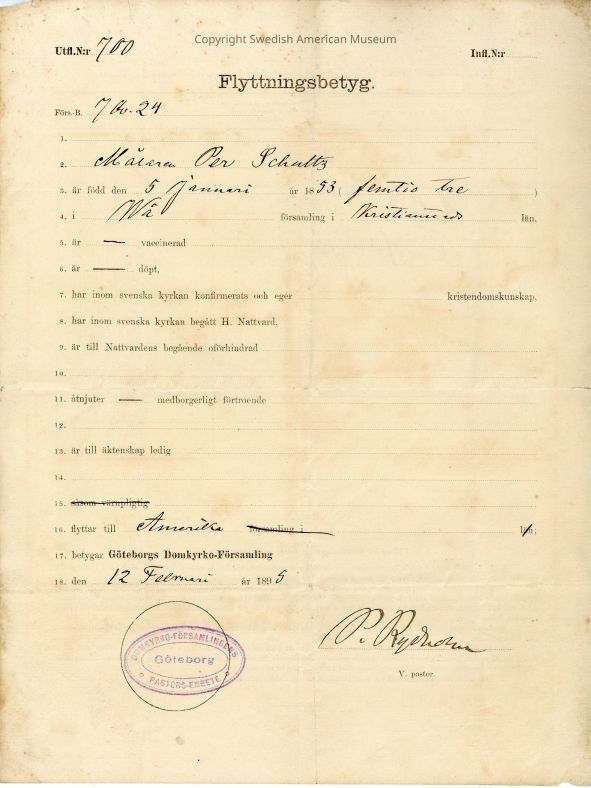 Copyright Swedish American Museum
Utfl.N:r 700 Infl.N:r
Flyttningsbetyg.
Förs.-B. 7 Qv. 24
1.
2. Målaren Per Schultz
3. är född den 5 Januari år 1853 (femtio tre)
4. i Wä församling i Kristianstads län.
5. är — vaccinerad
6. är — döpt,
7. har inom svenska kyrkan konfirmerats och eger kristendomskunskap.
8. har inom svenska kyrkan begått H. Nattvard,
9. är till Nattvardens begående oförhindrad
10.
11. åtnjuter — medborgerligt förtroende
12.
13. är till äktenskap ledig
14.
15. såsom värnpligtig
16. flyttar till Amerika församling i län;
17. betygar Göteborgs Domkyrko-Församling
18. den 12 Februari år 1895
P. Rydholm
V. pastor.
DOMKYRKO-FÖRSAMLINGENS
Göteborg
PASTORS-EMBETE